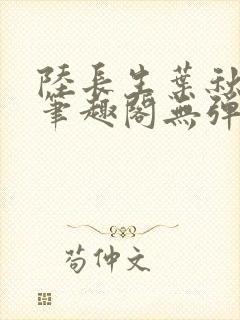 陸長生葉秋
筆趣閣無彈
荀仲文